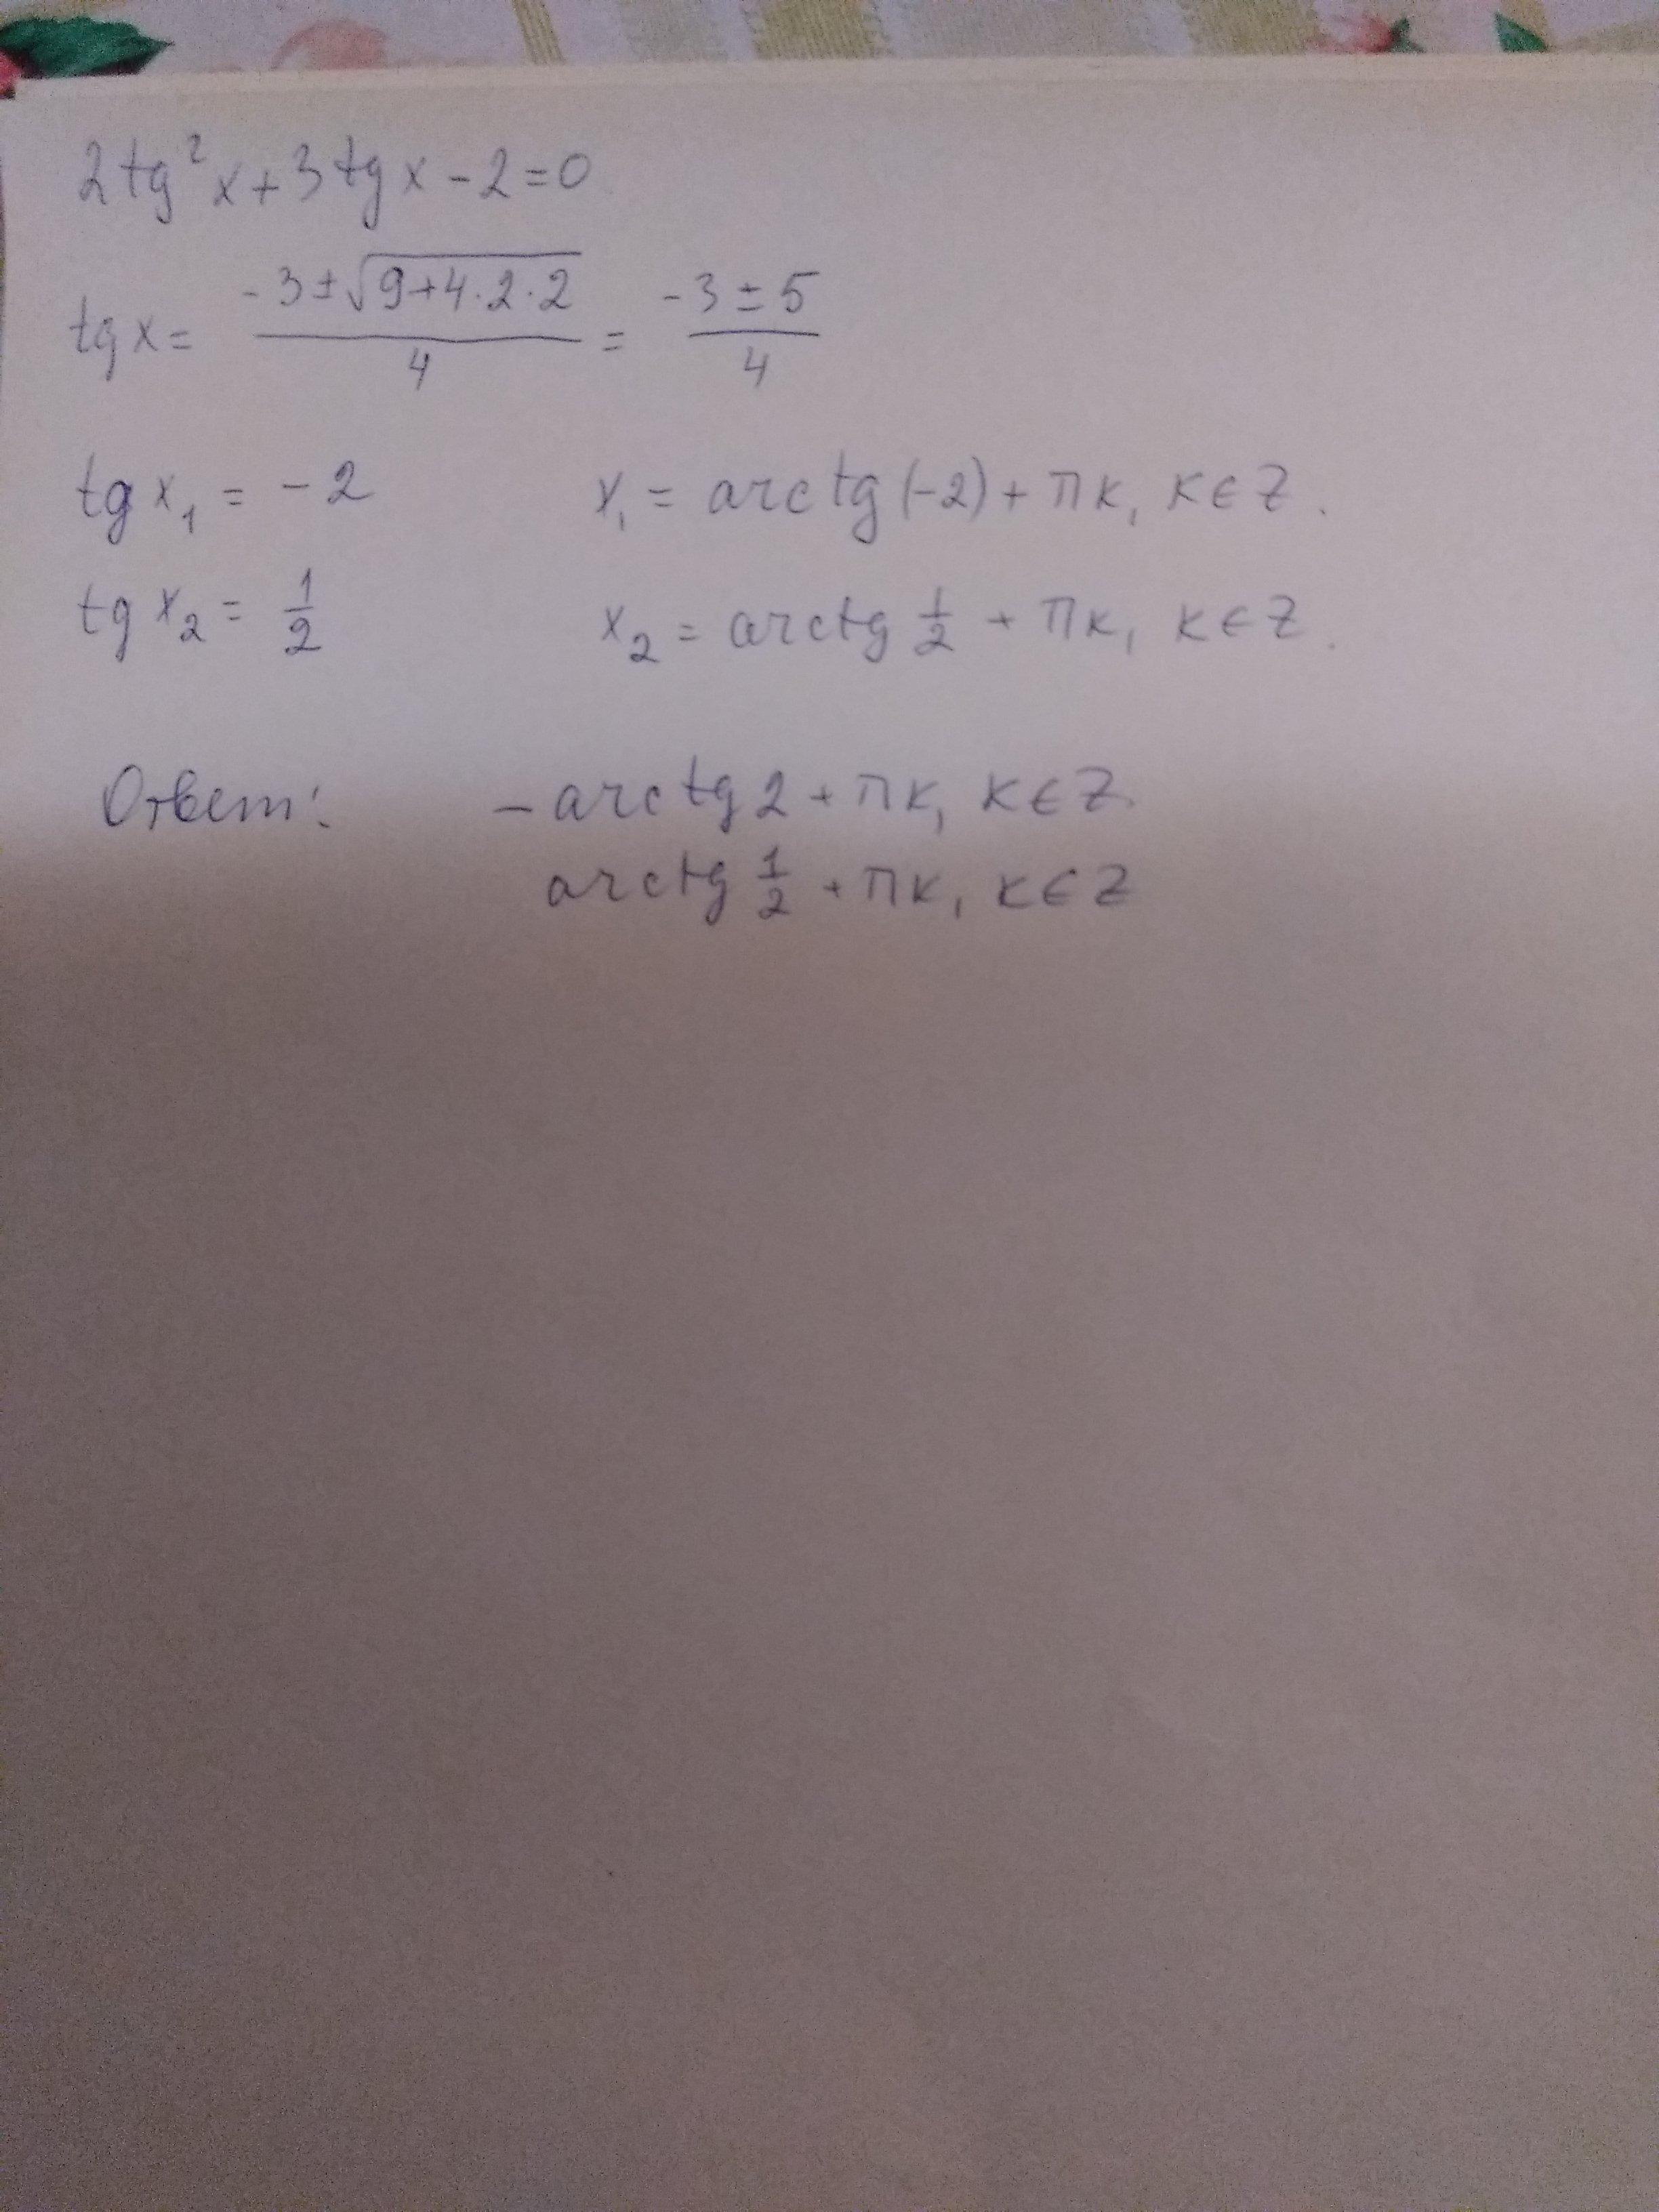 2tg²x+3tgx-2=0
tgx = (-3±√(9+4·2·2))/4 = (-3±5)/4
tg x₁ = -2    x₁ = arctg(-2)+πк, к∈Z.
tg x₂ = 1/2    x₂ = arctg 1/2 + πк, к∈Z.
Ответ: -arctg2+πк, к∈Z.
arctg 1/2 + πк, к∈Z